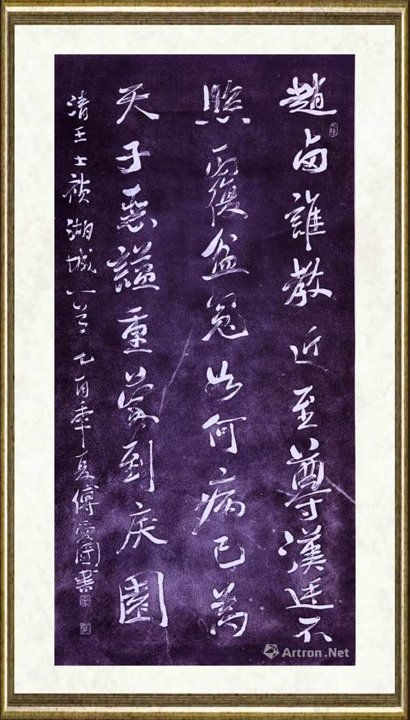 趙鹵誰教近至尊漢廷不
照覆盆冤如何病已為
天子惡謚重蒙到戾園
清王士禎湖城一首乙酉季夏傅愛國書
Artron.Net